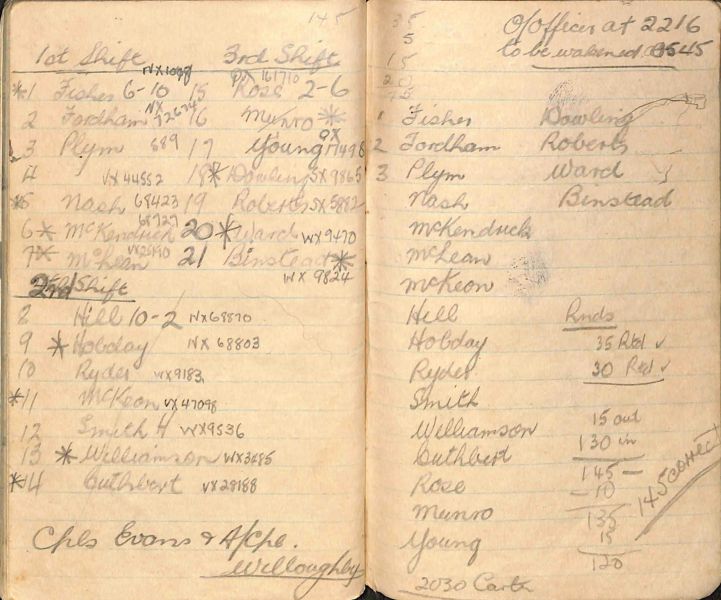 145
1st Shift 3rd Shift
*1 Fisher 6-10 15 Rose 2-6
2 Fordham NX 12674 16 Munro *
3 Plym 889 17 Young QX 17498
4 VX 44552 18 * Dowling SX 9865
*5 Nash 68423 19 Roberts SX 5882
6 * McKendrick 68727 20 * Ward WX 9470
7 * McLean 21 Binstead *
WX 9824
2nd Shift
8 Hill 10-2 NX 68870
9 * Hobday NX 68803
10 Ryder WX9183
*11 McKeon VX 47098
12 Smith H WX9536
13 * Williamson WX3485
*14 Cuthbert VX 28188
Cpls Evans & A/Cpl.
Willoughby
35
5
15
20
75
O/Officer at 2216
to be wakened 0545
1 Fisher Dowling
2 Fordham Roberts
3 Plym Ward
Nash Binstead
McKendrick
McLean
McKeon
Hill Rnds
Hobday 35 Rtd ✓
Ryder 30 Red ✓
Smith
Williamson 15 out
Cuthbert 130 in
Rose 145 –
Munro – 10
Young 135
15
120
145 correct
2030 Carter